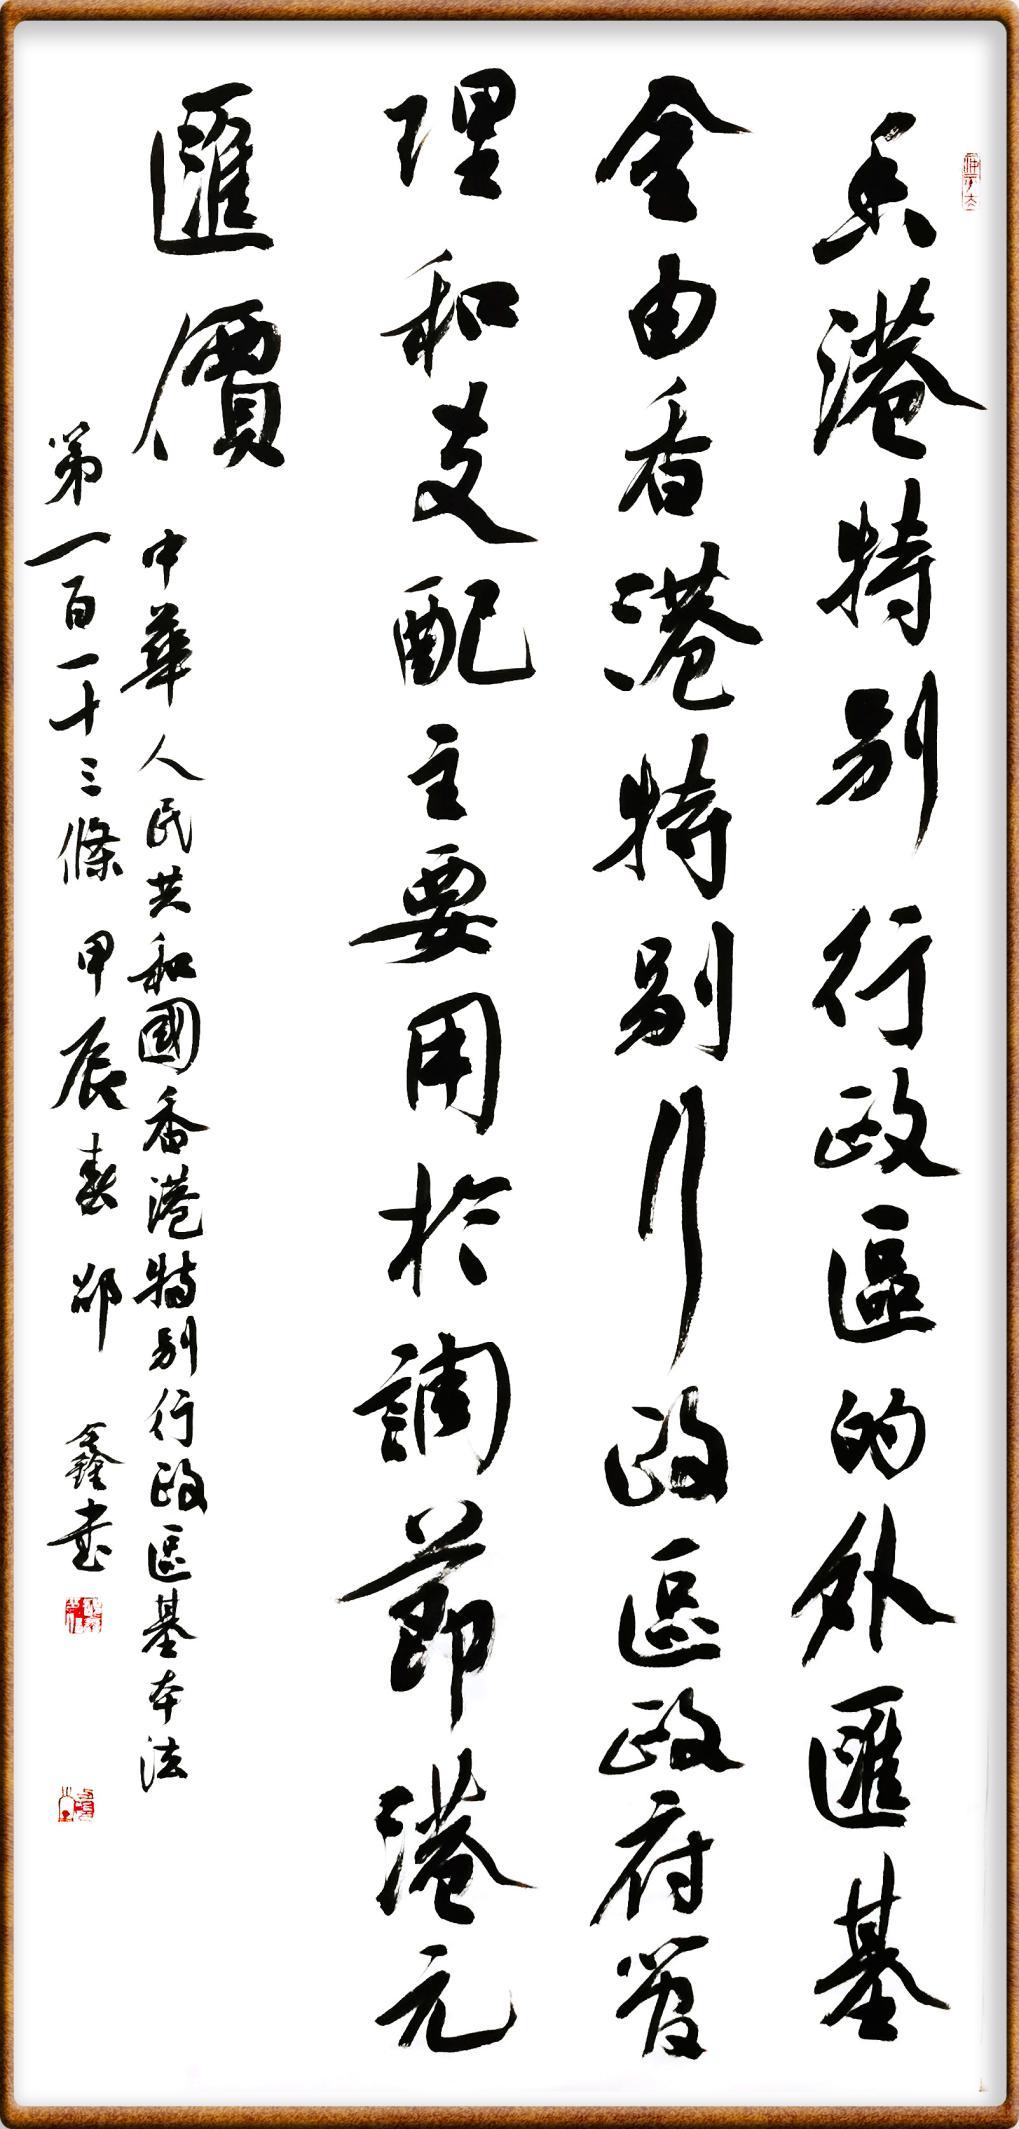 香港特別行政區的外匯基
金由香港特別行政區政府管
理和支配主要用於調節港元
匯價
中華人民共和國香港特別行政區基本法
第一百一十三條 甲辰春 邵鑫書